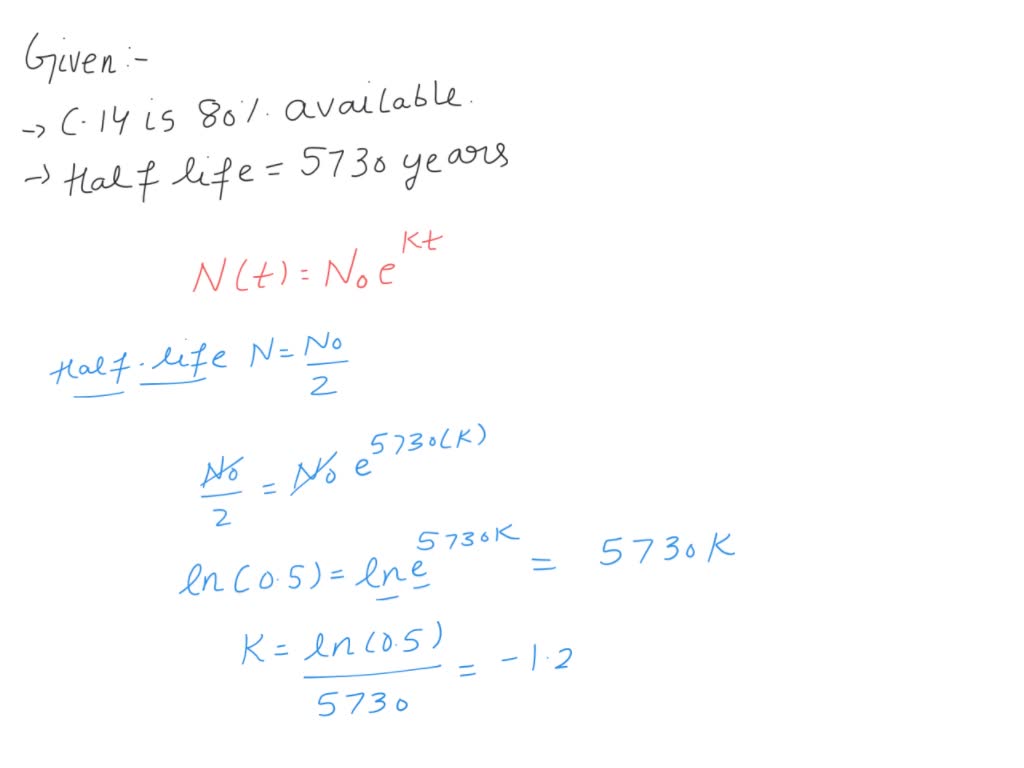 Given :-
→ C-14 is 80% available.
→ Half life = 5730 years
N(t) = N₀e^Kt
Half-life N = N₀/2
N₀/2 = N₀ e^5730(K)
ln(0.5) = ln e^5730K = 5730K
K = ln(0.5)/5730 = -1.2